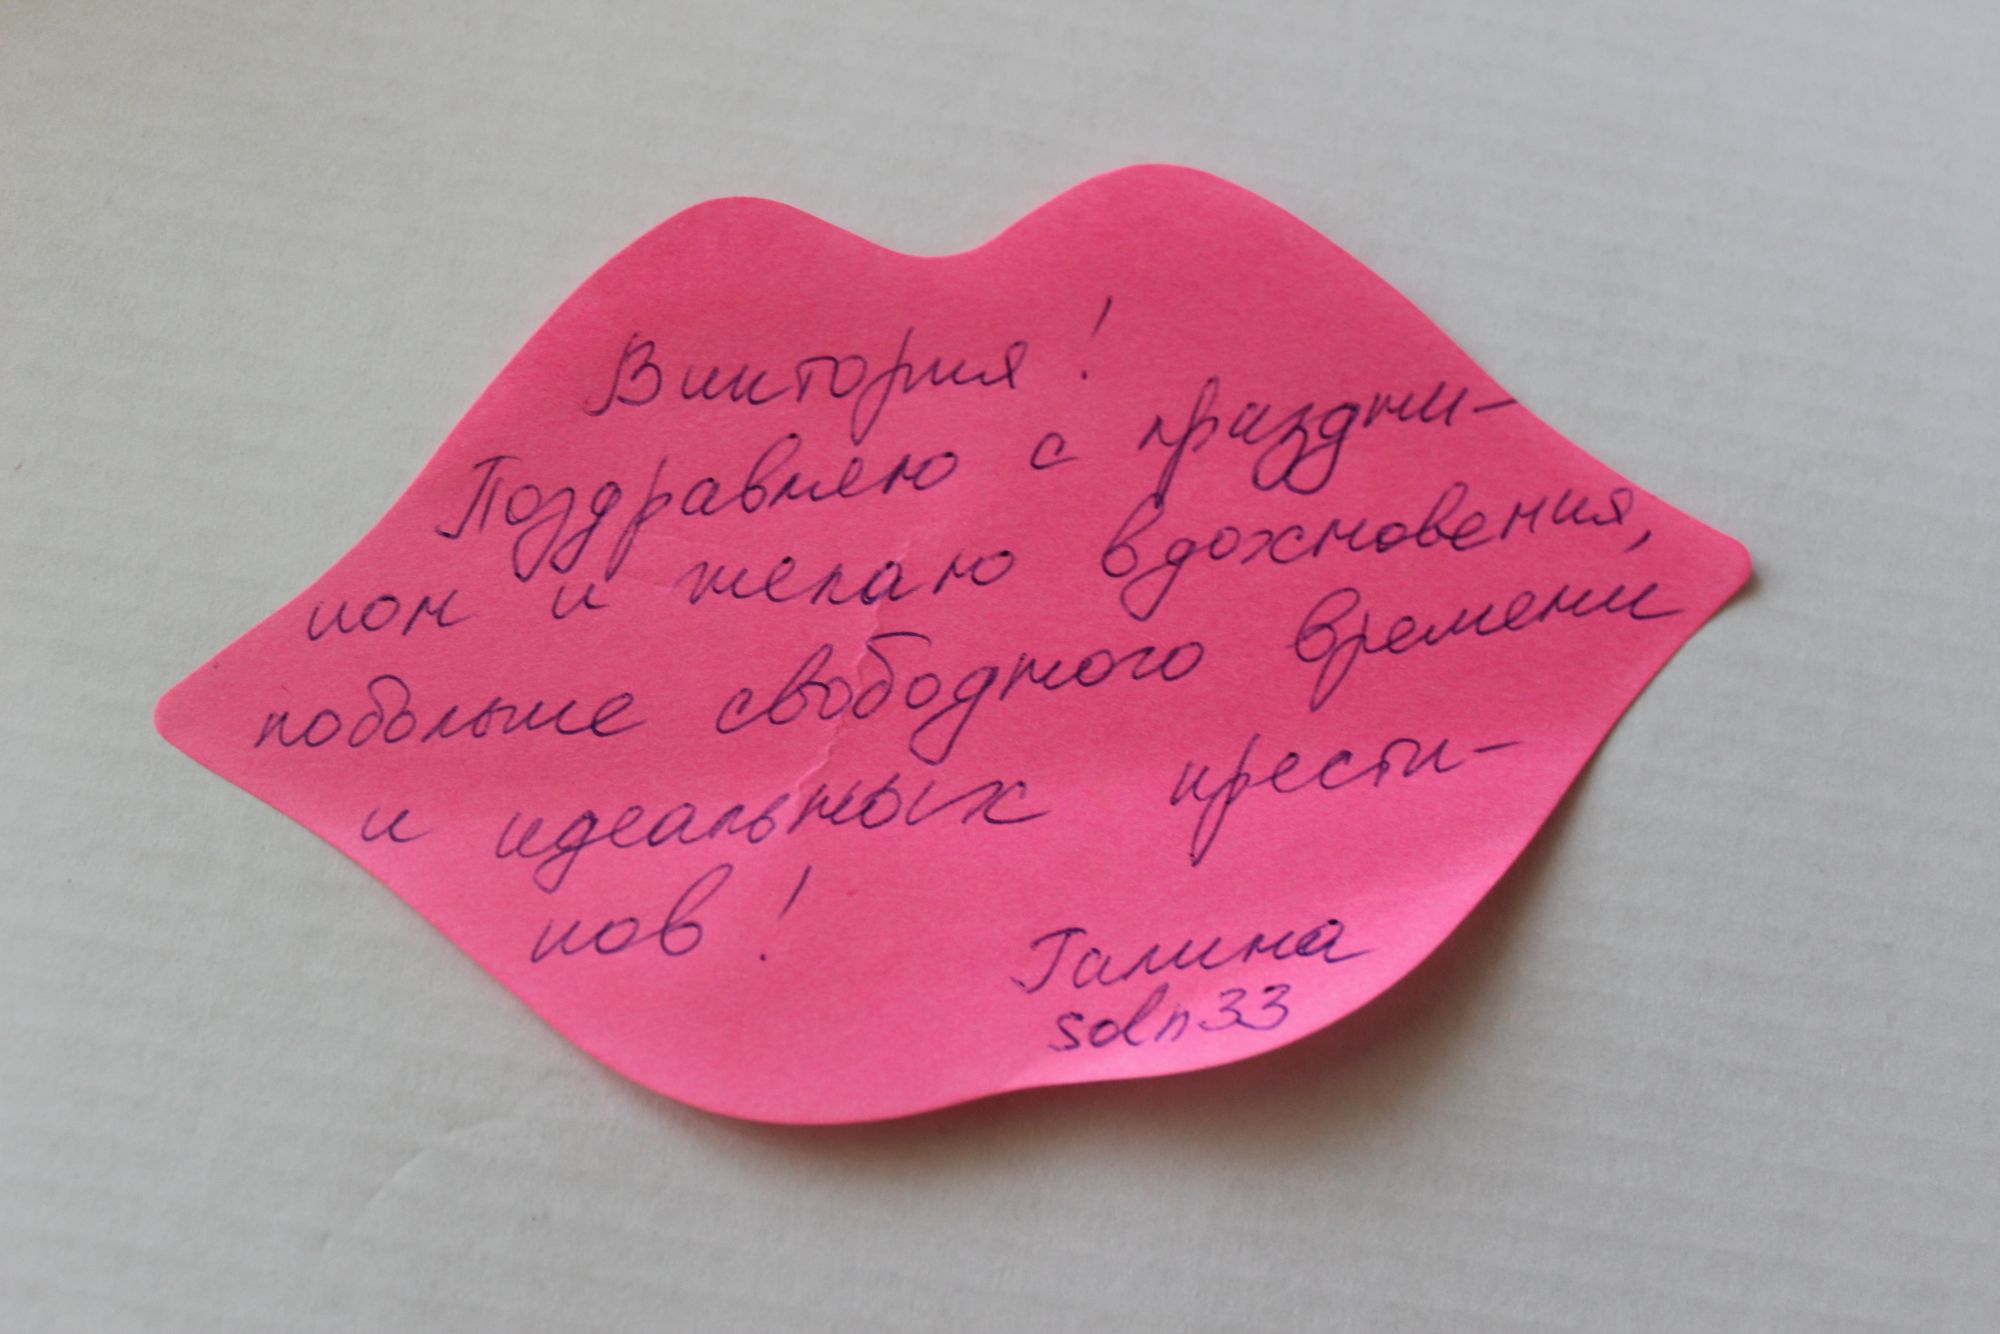 Виктория!
Поздравляю с праздни-
ком и желаю вдохновения,
побольше свободного времени
и идеальных крести-
ков!
Галина
soln33